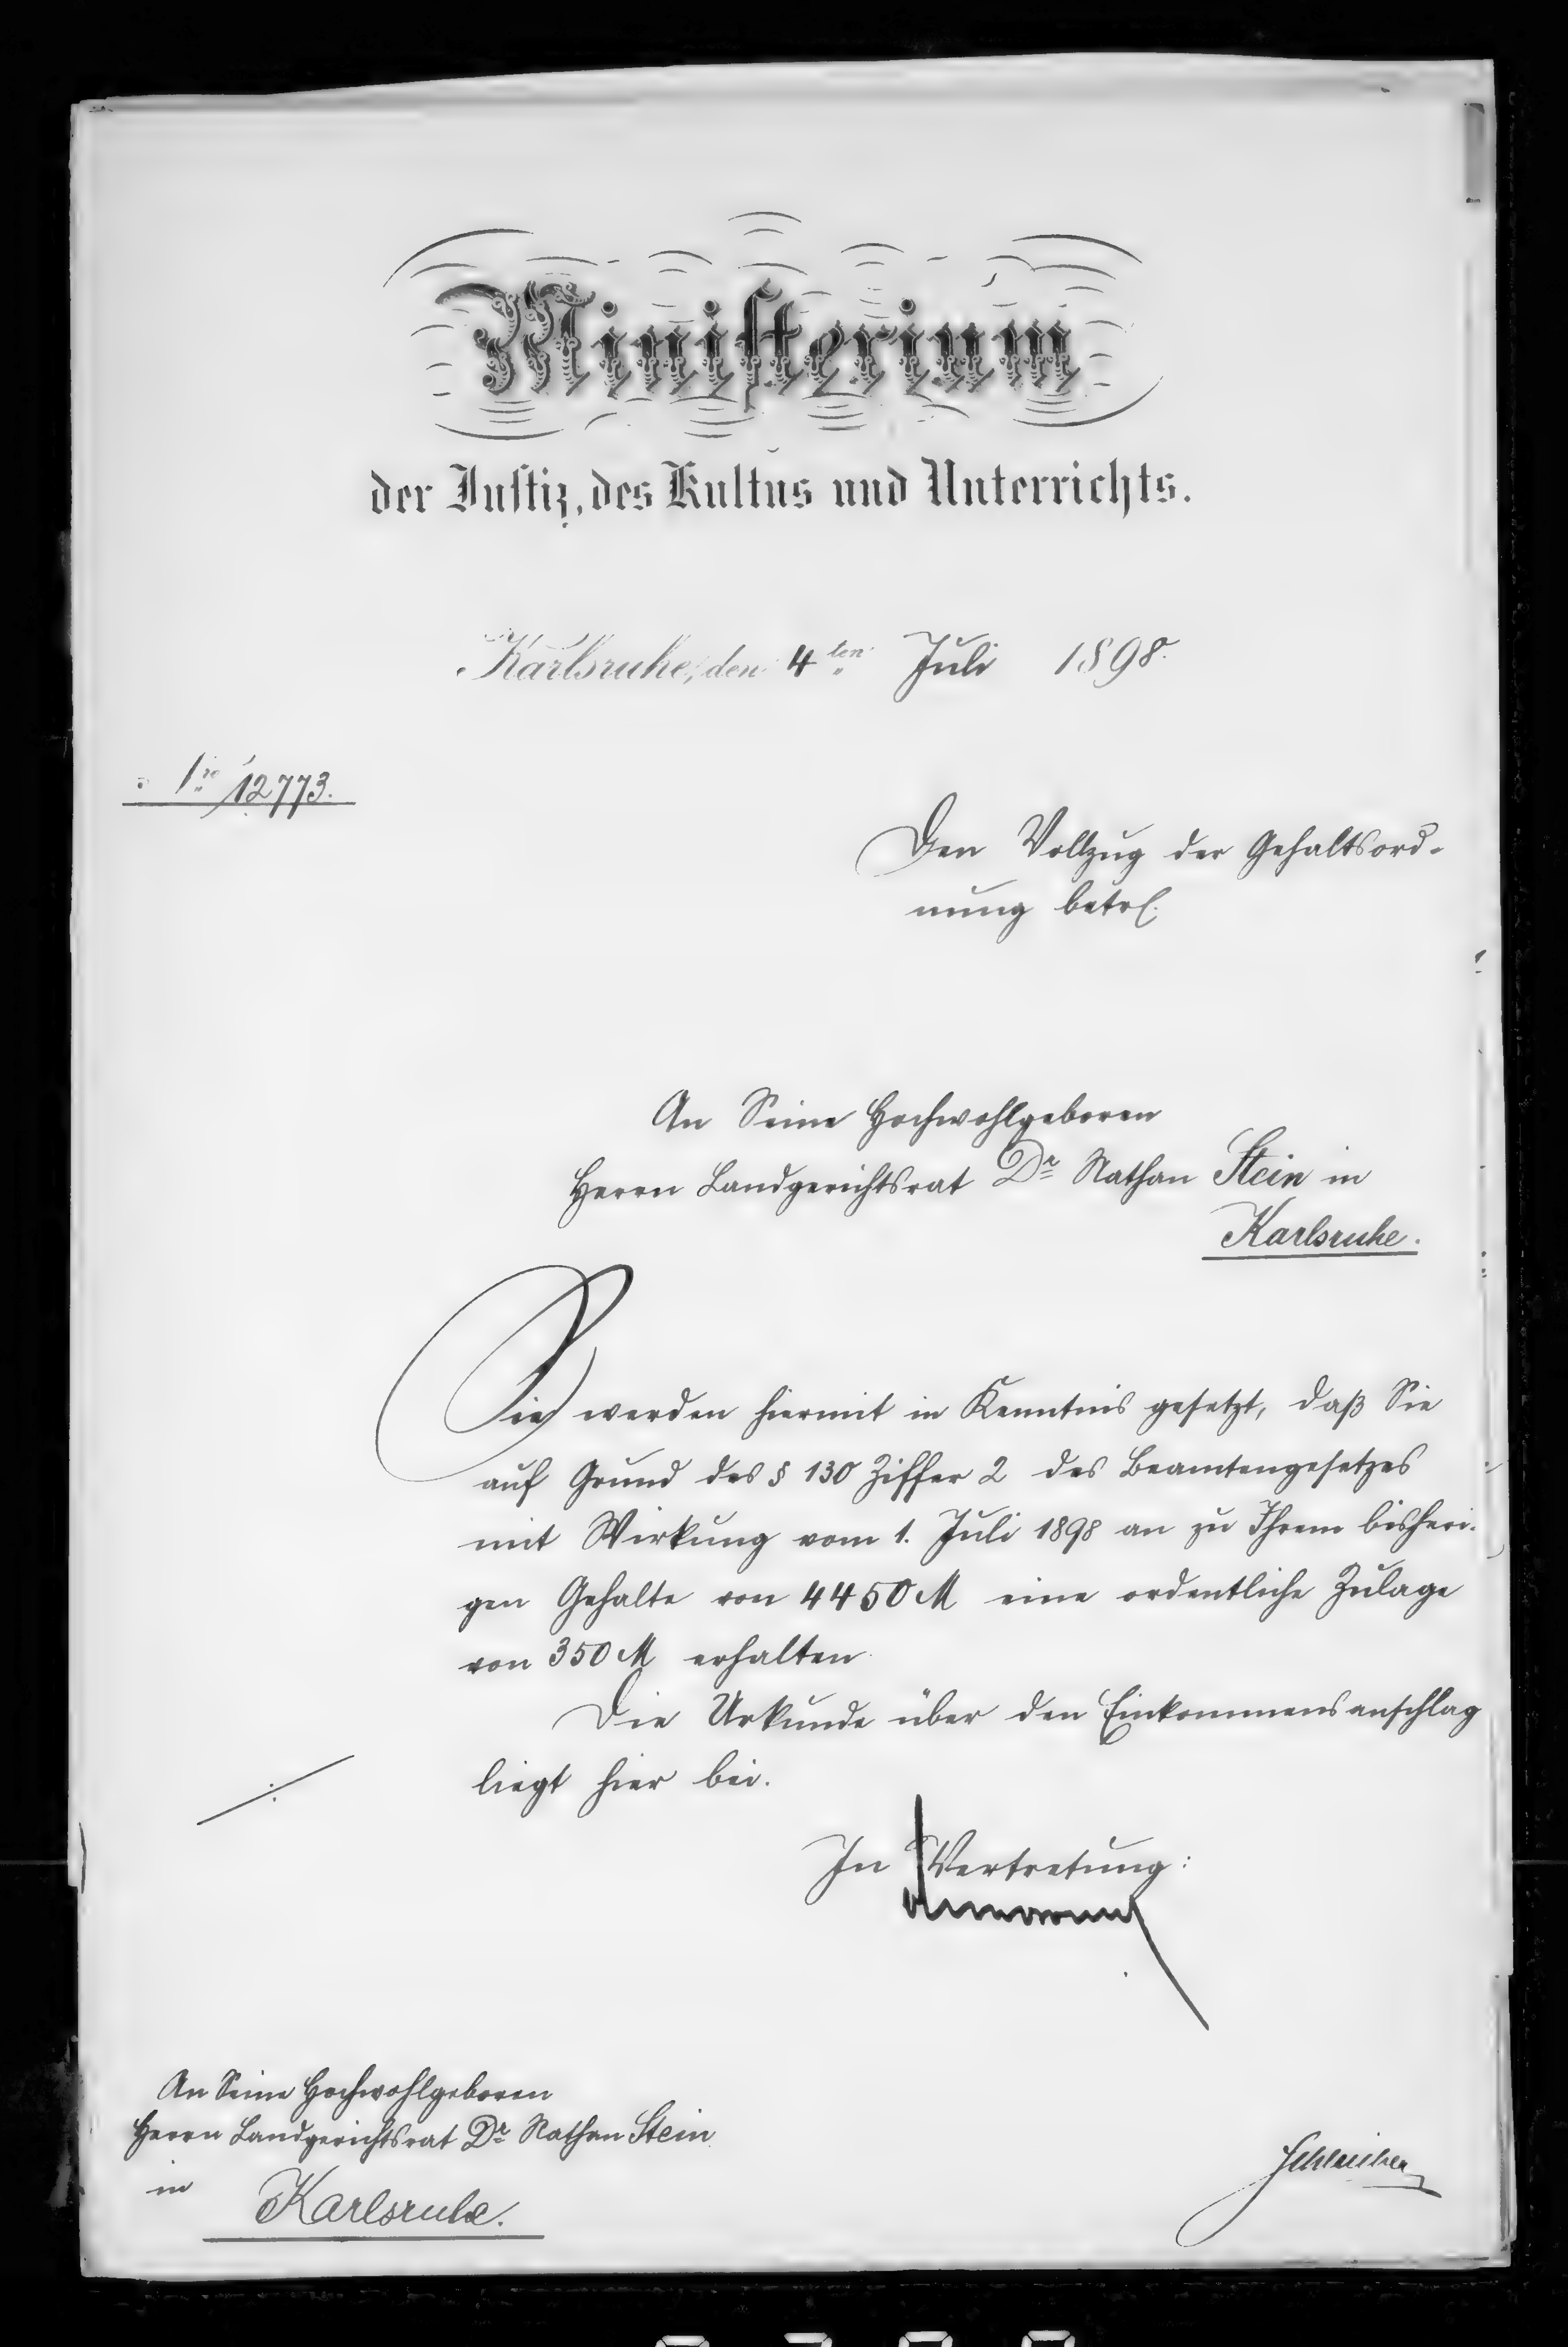 Ministerium
der Justiz, des Kultus und Unterrichts.
Karlsruhe, den 4ten Juli 1898.
12773.
Den Vollzug der Gehaltsord-
nung betr.
An Seine Hochwohlgeboren
Herrn Landgerichtsrat Dr Nathan Stein in
Karlsruhe.
Sie werden hiermit in Kenntnis gesetzt, daß Sie
auf Grund des § 130 Ziffer 2 des Beamtengesetzes
mit Wirkung vom 1. Juli 1898 an zu Ihrem bisheri-
gen Gehalte von 4450 M eine ordentliche Zulage
von 350 M erhalten.
Die Urkunde über den Einkommensanschlag
liegt hier bei.
In Vertretung:
An Seine Hochwohlgeboren
Herrn Landgerichtsrat Dr Nathan Stein
in Karlsruhe.